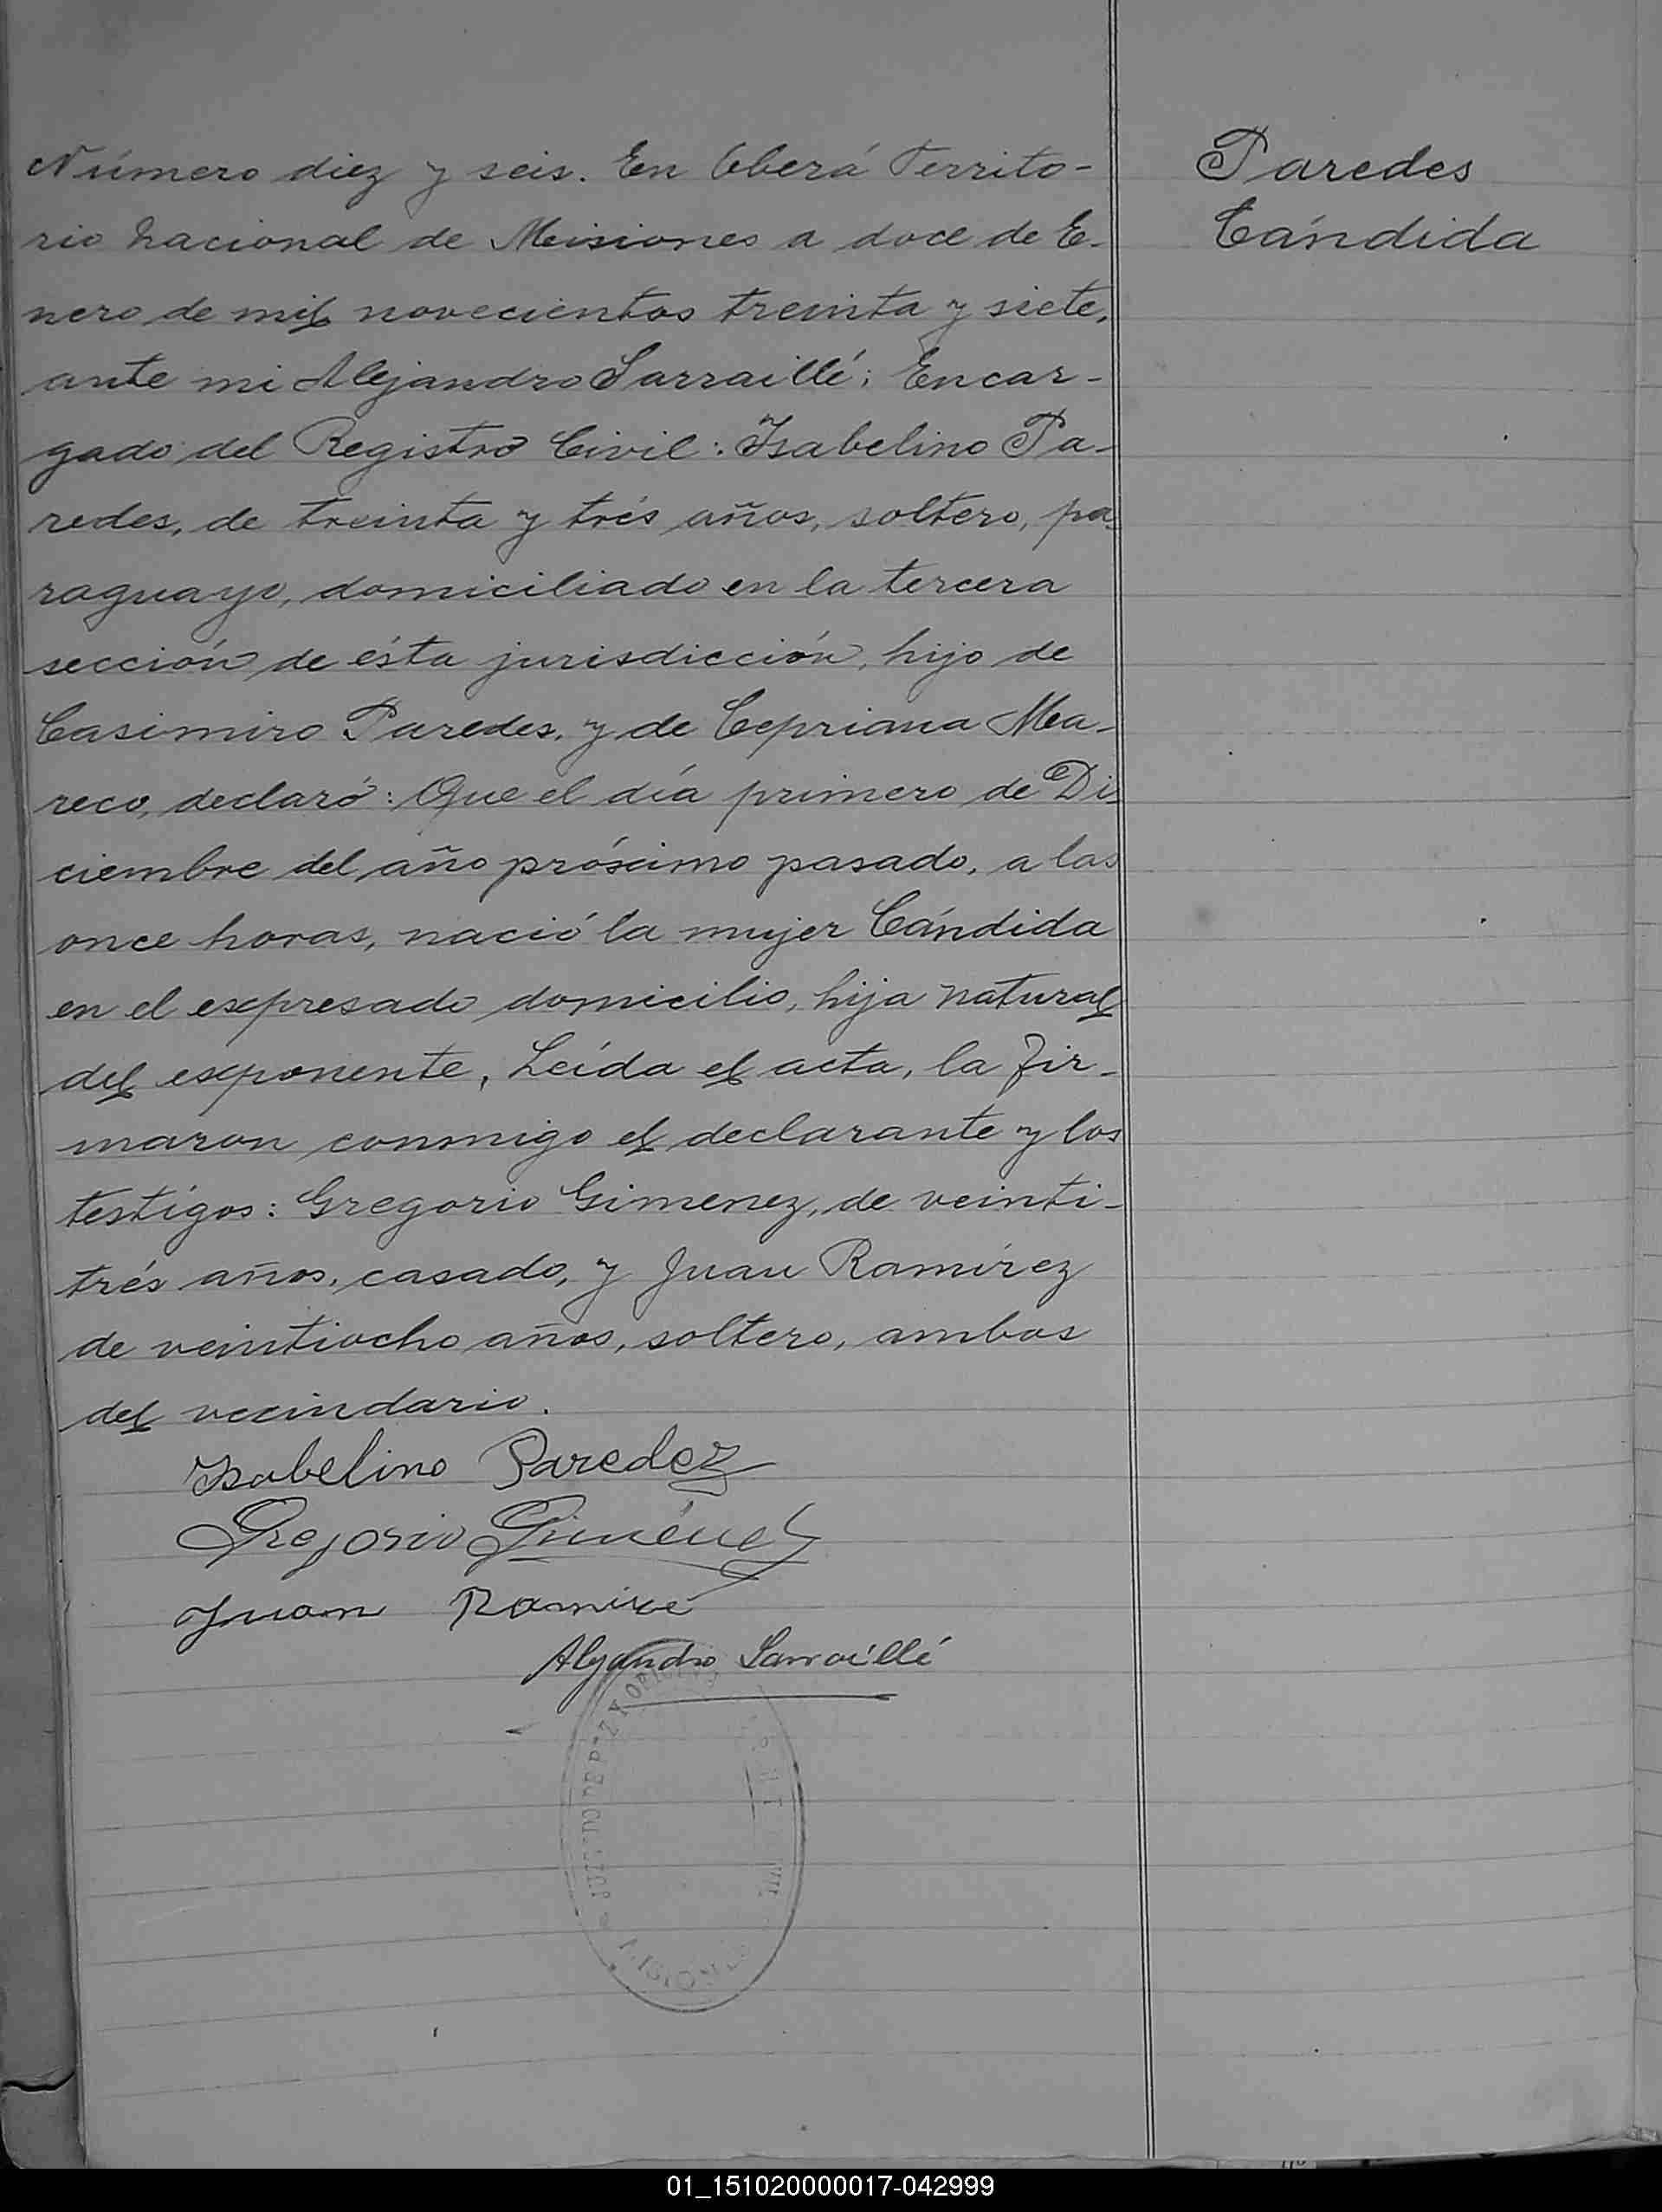 Número diez y seis. En Oberá Territo-
rio Nacional de Misiones a doce de E-
nero de mil novecientos treinta y siete,
ante mi Alejandro Sarraillé; Encar-
gado del Registro Civil: Isabelino Pa-
redes, de treinta y trés años, soltero, pa-
raguayo, domiciliado en la tercera
sección de ésta jurisdicción, hijo de
Casimiro Paredes, y de Cepriana Mea-
reco, declaró: Que el día primero de Di-
ciembre del año próximo pasado, a las
once horas, nació la mujer Cándida
en el expresado domicilio, hija natural
del exponente, Leída el acta, la fir-
maron conmigo el declarante y los
testigos: Gregorio Gimenez, de veinti-
trés años, casado, y Juan Ramírez
de veintiocho años, soltero, ambos
del vecindario.
Isabelino Paredez
Gregorio Giménez
Juan Ramire
Alejandro Sarraillé
MISIONES
Paredes
Cándida
01_151020000017-042999